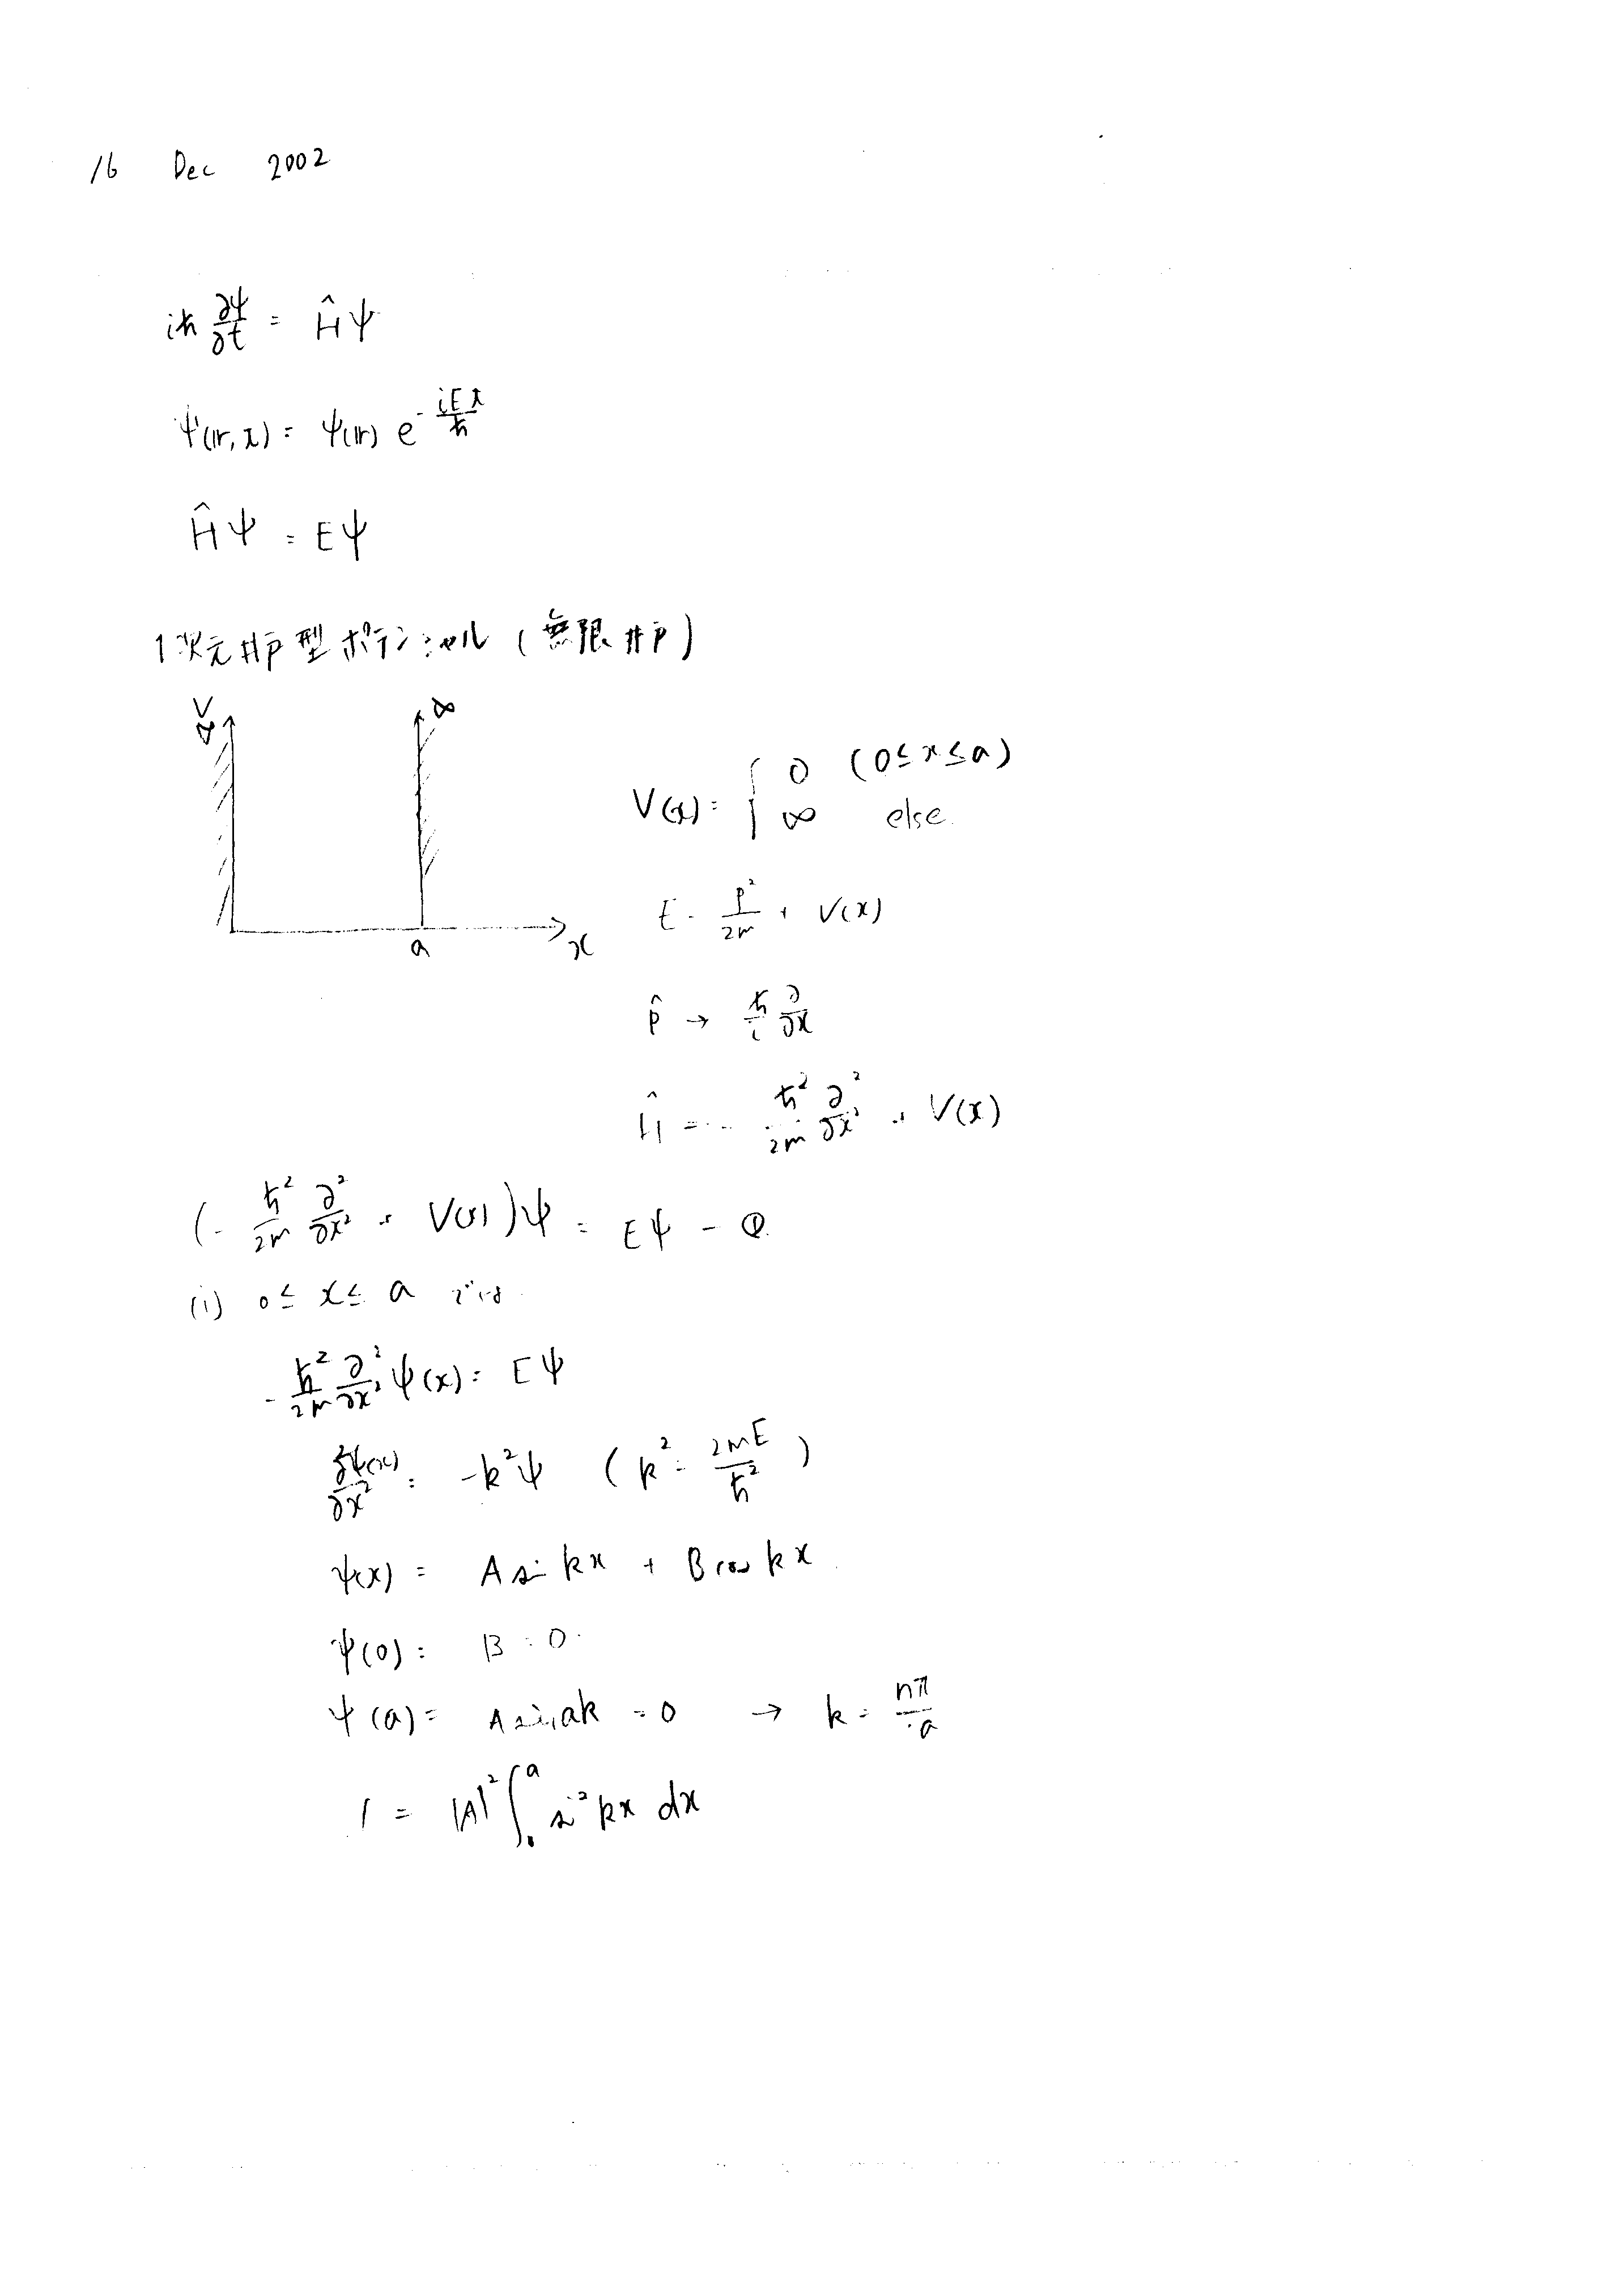 16 Dec 2002
iħ ∂ψ/∂t = Ĥψ
ψ(𝕣,t) = ψ(𝕣) e^{-iEt/ħ}
Ĥψ = Eψ
1次元井戸型ポテンシャル (無限井戸)
V
∞
∞
a
x
V(x) = { 0 (0≤x≤a)
∞ else.
E = p²/2m + V(x)
p̂ → ħ/i ∂/∂x
Ĥ = - ħ²/2m ∂²/∂x² + V(x)
(- ħ²/2m ∂²/∂x² + V(x))ψ = Eψ - ①
(i) 0≤ x≤ a では
- ħ²/2m ∂²/∂x² ψ(x) = Eψ
∂²ψ(x)/∂x² = -k²ψ (k² = 2mE/ħ²)
ψ(x) = A sin kx + B cos kx
ψ(0) = B = 0
ψ(a) = A sin ak = 0 → k = nπ/a
1 = |A|² ∫₀^a sin² kx dx